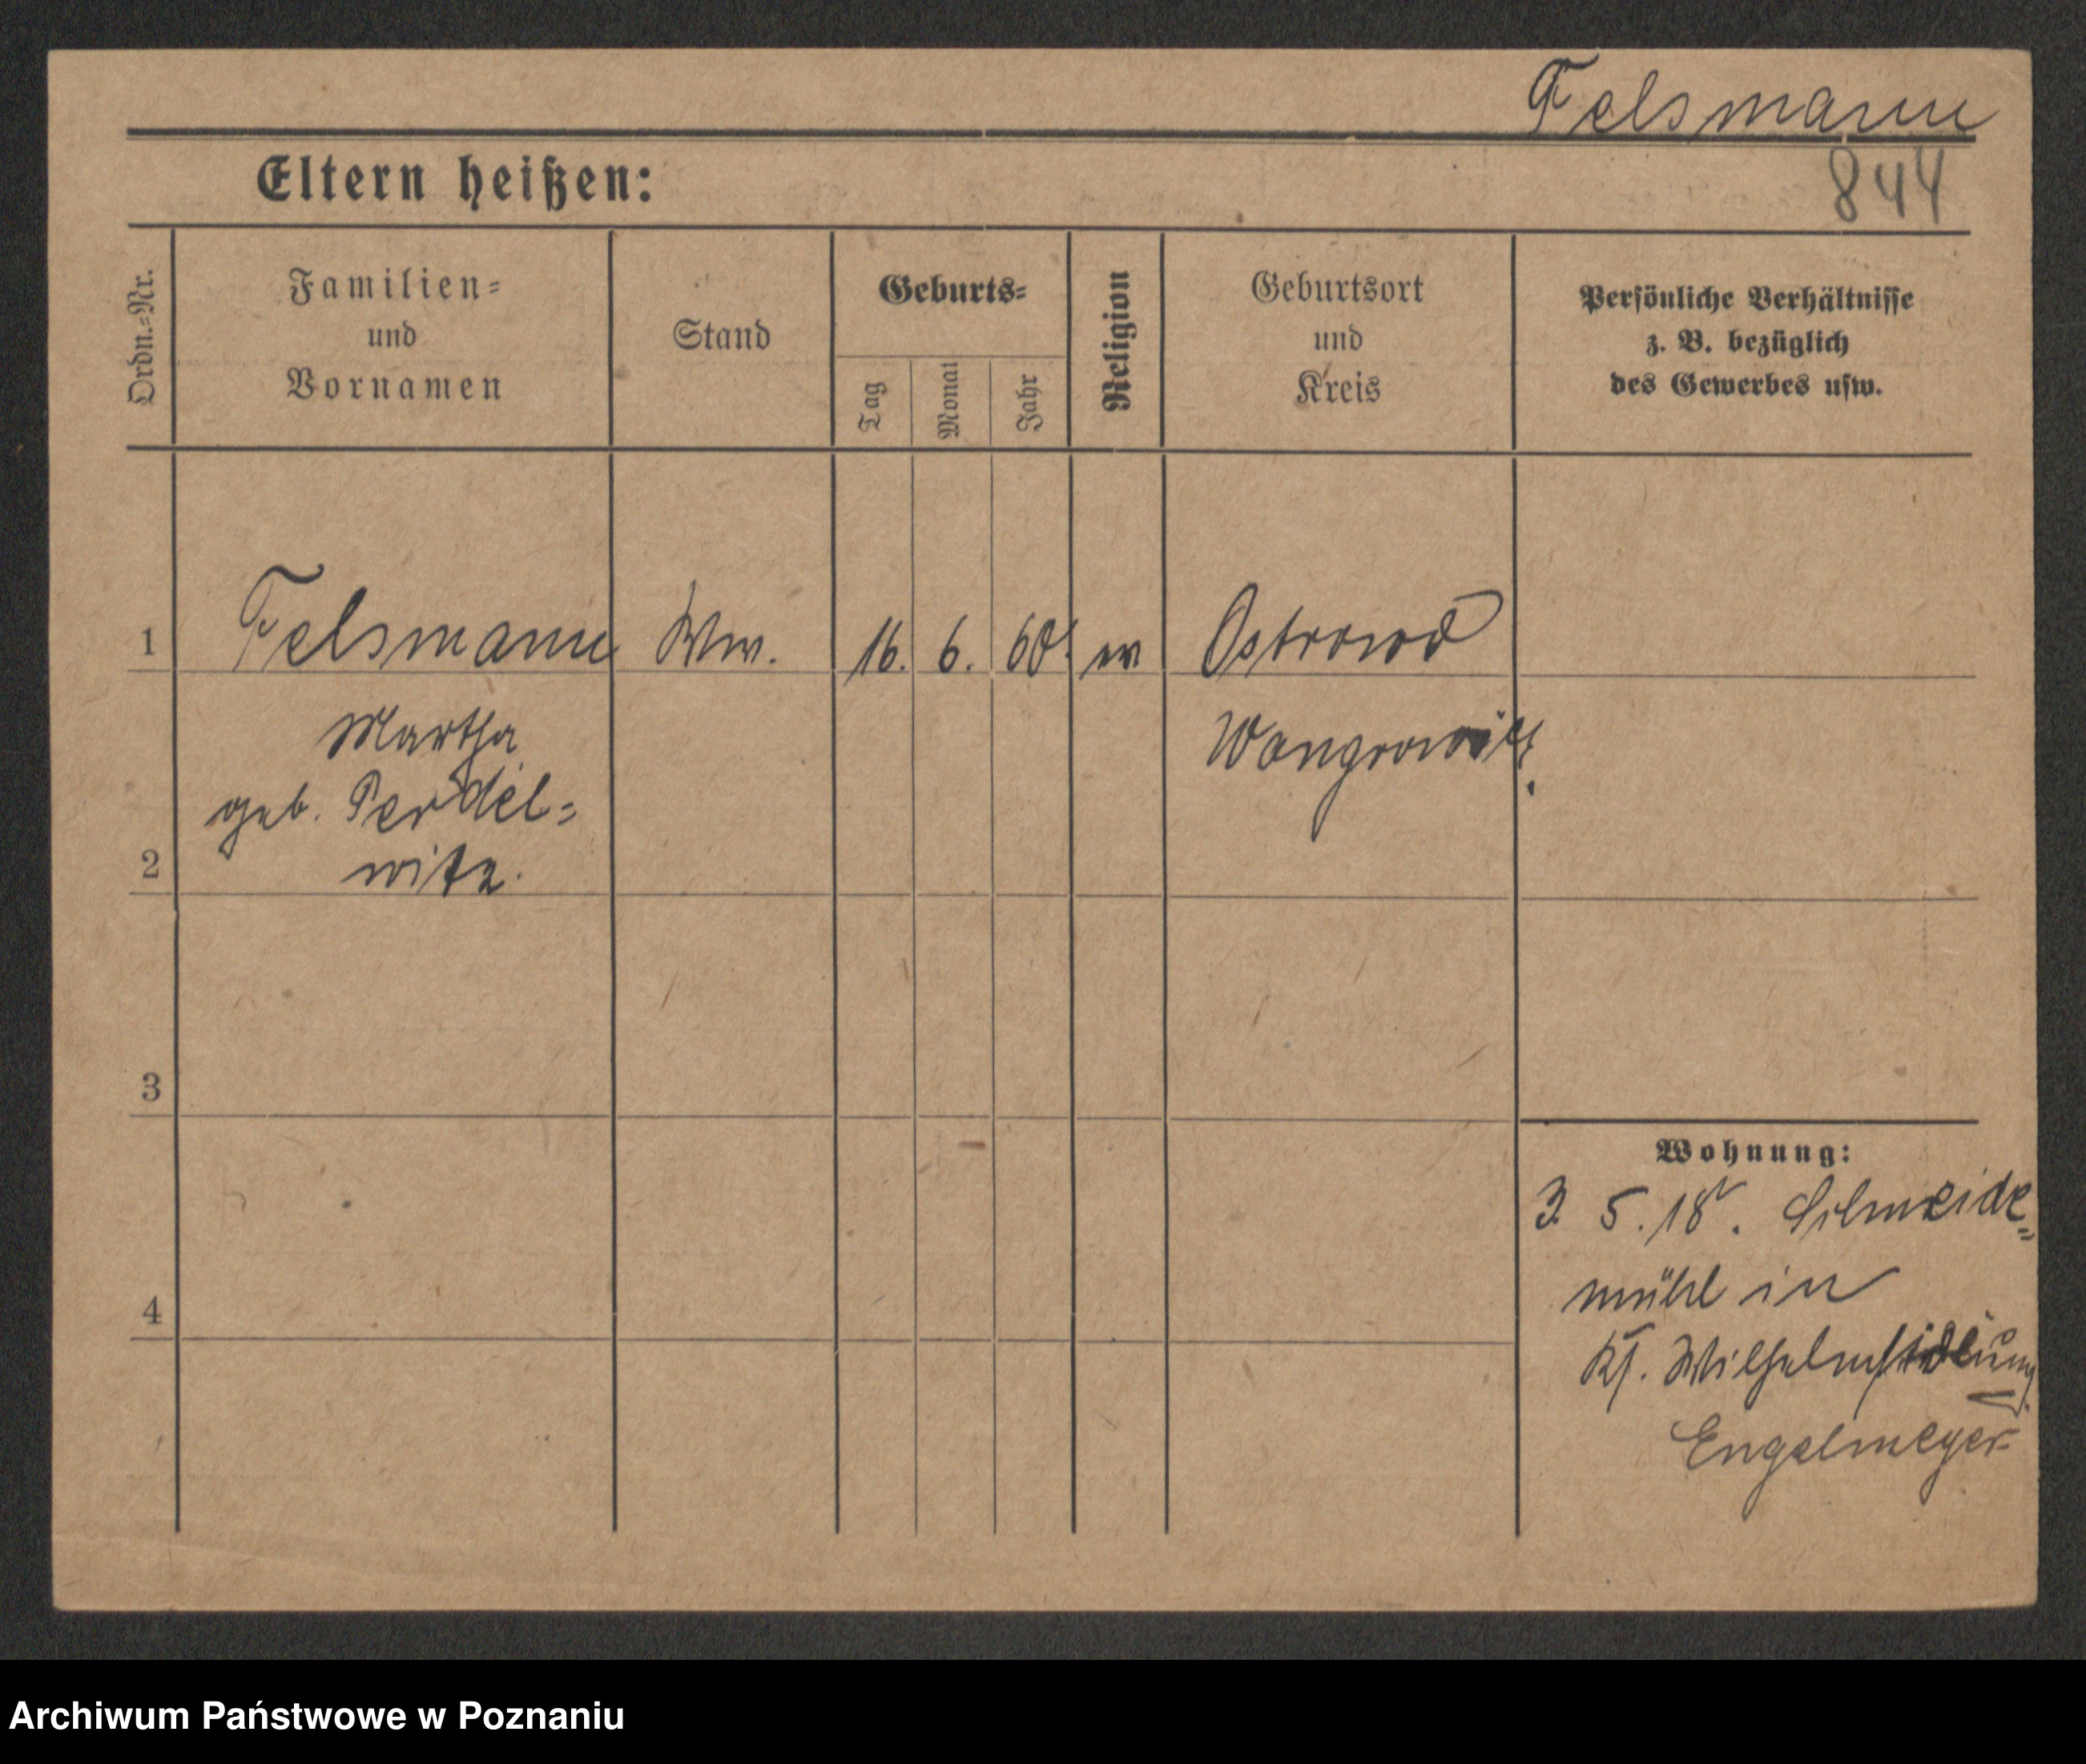 Felsmann
844
Eltern heißen:
Ordn.=Nr.
Familien=
und
Vornamen
Stand
Geburts=
Tag
Monat
Jahr
Religion
Geburtsort
und
Kreis
Persönliche Verhältnisse
z. B. bezüglich
des Gewerbes usw.
1
Felsmann Ww. 16. 6. 60. Ostrowo
Martha
Wongrowitz
geb. Perdel=
2
witz.
3
4
Wohnung:
3. 5. 18. Schneide=
mühl in
Engelmeyer
Archiwum Państwowe w Poznaniu